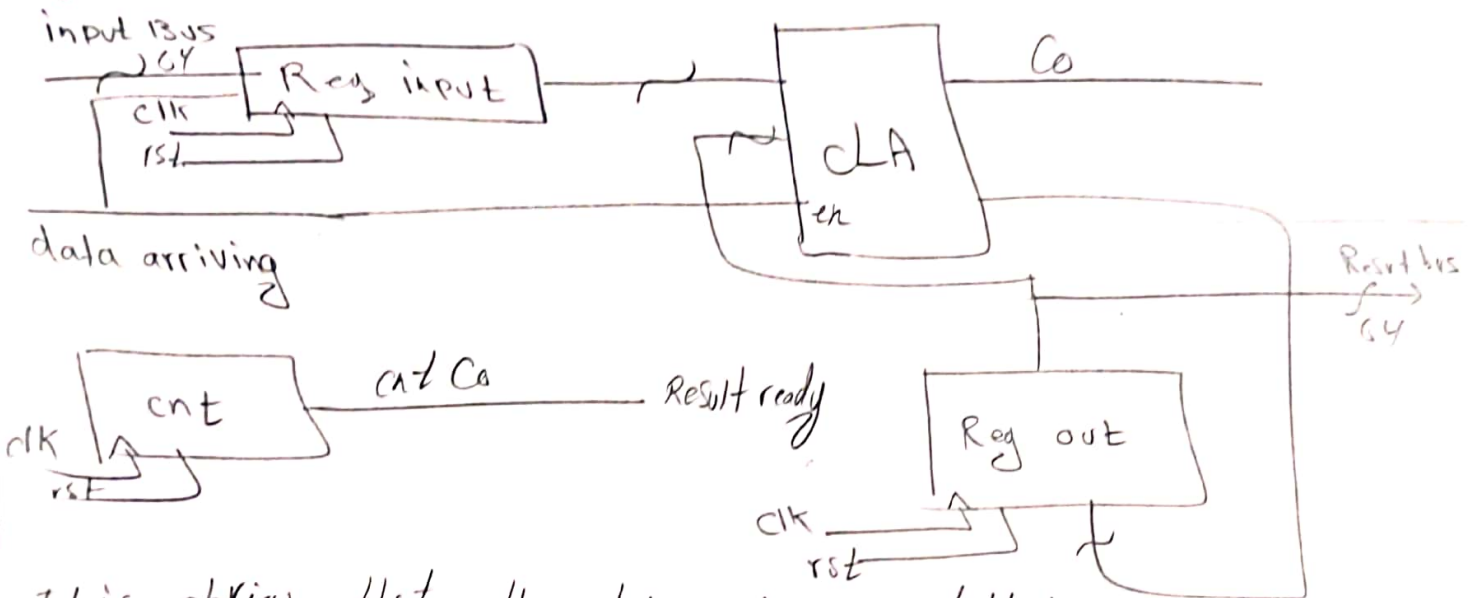 input Bus
64
Reg input
clk
rst
Co
CLA
en
data arriving
Result bus
64
cnt
cnt Co
Result ready
clk
rst
Reg out
clk
rst